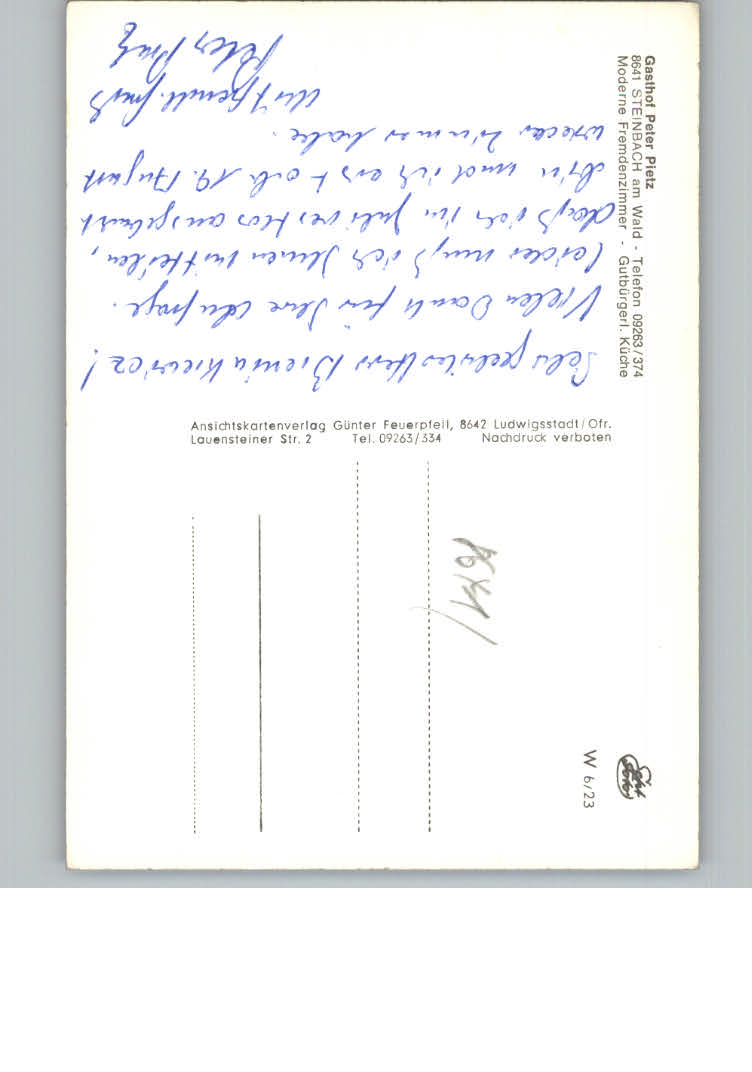 Gasthof Peter Pietz
8641 STEINBACH am Wald - Telefon 09263/374
Moderne Fremdenzimmer - Gutbürgerl. Küche
Sehr geehrter Herr Bieniakiewicz!
Vielen Dank für Ihre Anfrage.
Leider muß ich Ihnen mitteilen,
daß ich im Juli restlos ausgebucht
bin und ich erst ab 19. August
wieder Zimmer habe.
Mit freundl. Gruß
Peter Pietz
Ansichtskartenverlag Günter Feuerpfeil, 8642 Ludwigsstadt/Ofr.
Lauensteiner Str. 2 Tel. 09263/334 Nachdruck verboten
8641
W 6/23